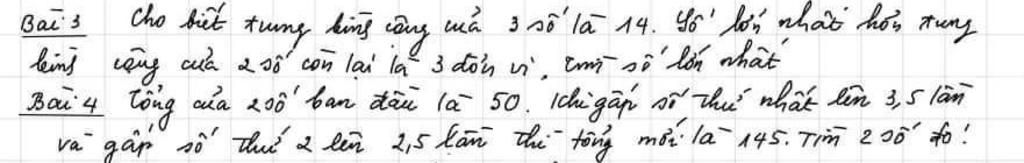 Bài 3 Cho biết trung bình cộng của 3 số là 14. Số lớn nhất hơn trung
bình cộng của 2 số còn lại là 3 đơn vị. Tìm số lớn nhất
Bài 4 Tổng của 2 số ban đầu là 50. Khi gấp số thứ nhất lên 3,5 lần
và gấp số thứ 2 lên 2,5 lần thì tổng mới là 145. Tìm 2 số đó!